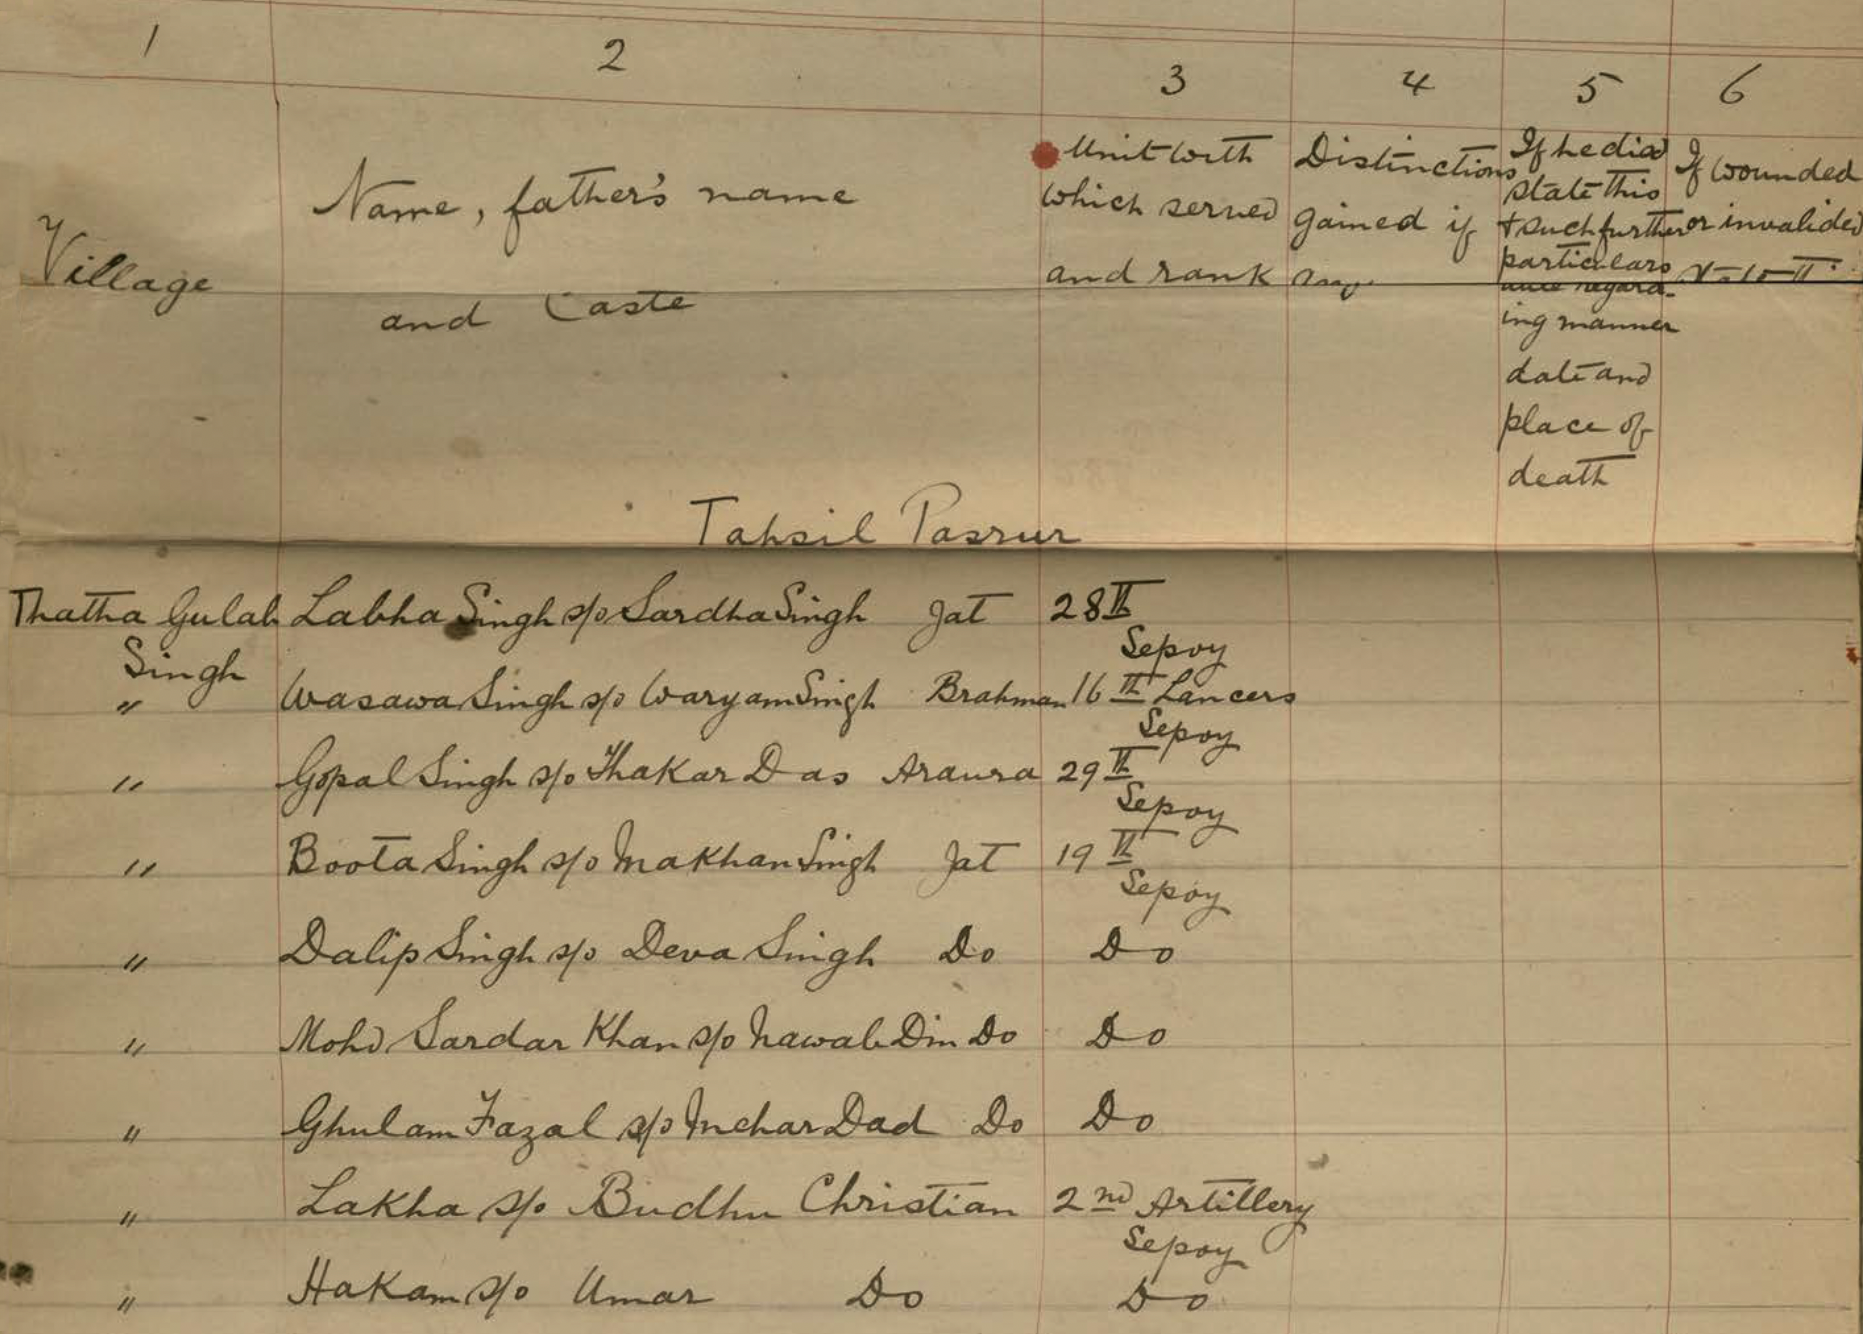 1 2 3 4 5 6
Village
Name, father's name
and Caste
Unit with
which served
and rank
Distinctions
gained if
any
If he died
state this
+ such further
particulars
regard-
ing manner
date and
place of
death
If wounded
or invalided
Tahsil Pasrur
Thatha Gulab Labha Singh s/o Sardha Singh Jat 28th
Singh Sepoy
" Wasawa Singh s/o Waryam Singh Brahman 16th Lancers
Sepoy
" Gopal Singh s/o Thakar Das Araura 29th
Sepoy
" Boota Singh s/o Makhan Singh Jat 19th
Sepoy
" Dalip Singh s/o Deva Singh Do Do
" Mohd Sardar Khan s/o Nawab Din Do Do
" Ghulam Fazal s/o Mehar Dad Do Do
" Lakha s/o Budhu Christian 2nd Artillery
Sepoy
" Hakam s/o Umar Do Do